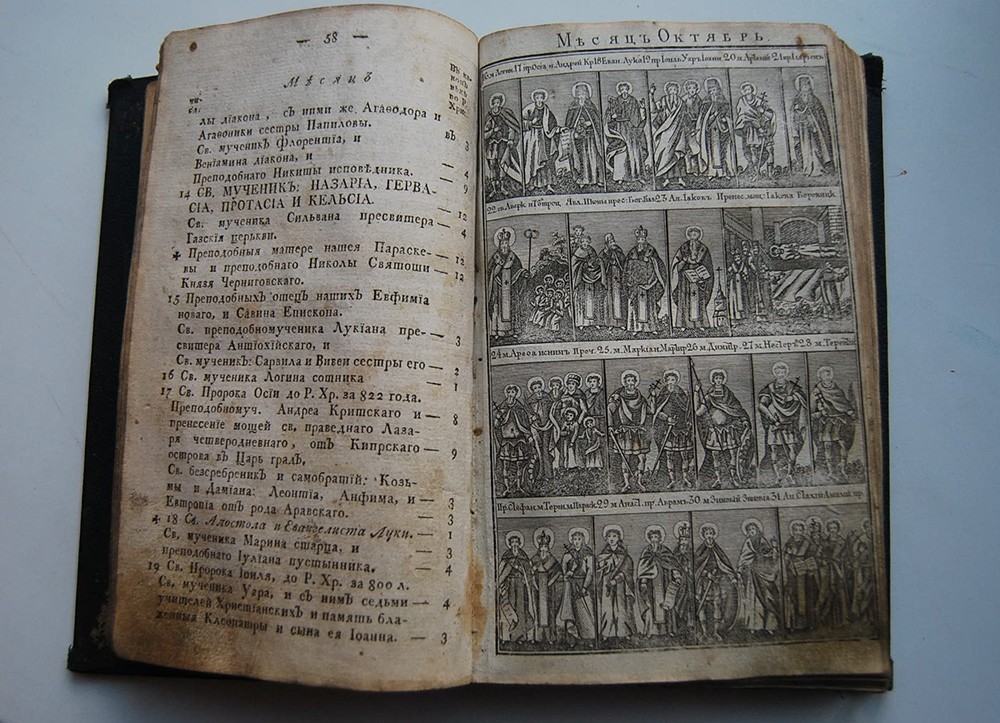 — 58 —
Мѣсяцъ
чи-
сла.
Въ ко-
вѣкѣ
по Р.
Христ.
лы дїакона, съ ними же Агаѳодора и
Агаѳоники сестры Папиловы.
Св. мученикъ Флорентїа, и
въ 3
Венїамина дїакона, и
Преподобнаго Никиты исповѣдника. — 4
14 СВ. МУЧЕНИКЪ: НАЗАРІА, ГЕРВА- 9
СІА, ПРОТАСІА И КЕЛЬСІА.
— 12
Св. мученика Сильвана пресвитера — 4
Газскїя церькви.
Преподобныя матере нашея Параске- — 12
вы и преподобнаго Николы Святоши — 12
Князя Черниговскаго.
15 Преподобныхъ отецъ нашихъ Евфимїа
новаго, и Савина Епископа.
Св. преподобномученика Лукїана пре- — 3
свитера Антїохїйскаго, и
Св. мученикъ: Сарвила и Вивеи сестры его — 2
16 Св. мученика Логина сотника — 1
17 Св. Пророка Осїи до Р. Хр. за 822 года.
Преподобномуч. Андреа Критскаго и — 8
пренесенїе мощей св. праведнаго Лаза-
ря четверодневнаго, отъ Кипрскаго — 9
острова въ Царь градъ,
Св. безсребреникъ и самобратїй: Козь-
мы и Дамїана: Леонтїа, Анфима, и — 3
Евтропїа отъ рода Аравскаго. — 3
18 Св. Апостола и Евангелиста Луки. — 1
Св. мученика Марина старца, и — 3
преподобнаго Іулїана пустынника. — 4
19 Св. Пророка Іоиля, до Р. Хр. за 800 л.
Св. мученика Уара, и съ нимъ седьми — 4
учителей Христїанскихъ и память бла-
женныя Клеопатры и сына ея Іоанна. — 3
Мѣсяцъ Октябрь.
Логин. 17 пр Осїа п Андрей Кр 18 Еван. Лука 19 пр Іоиль Уар Іоанн. 20 м Артемїй 21 пр Іларїон
22 св. Аверк. Явл. Иконы прес: Бог: Каз 23 Ап. Іаков. Пренес. мощ: Іакова Боровицк
24 м. Арефа иснимъ Преч. 25. м. Маркїан Мартир 26 м. Димтр. 27 м. Нестеръ 28 м. Терентїй
Пр. Стефан м Терти м Параск 29 м Анаст. пр. Аврам. 30 м Зиновїй Зиновїа 31 Ап. Стахїй Амплїй пр